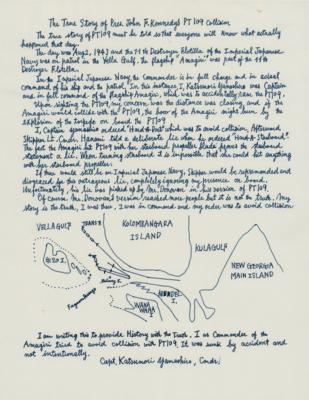 The True Story of Pres. John F. Kennedy's PT 109 Collision
The true story of PT 109 must be told so that everyone will know what actually
happened that day.
The day was Aug 2, 1943 and the 11th Destroyer Flotilla of the Imperial Japanese
Navy was on patrol in the Vella Gulf. The flagship "Amagiri" was part of the 11th
Destroyer Flotilla.
In the Imperial Japanese Navy, the Commander is in full charge and in actual
command of his ship and its patrol. In this instance I, Katsumori Yamashiro was Captain
and in full command of the flagship Amagiri, which was accidentally near the PT 109.
Upon sighting the PT 109, my concern was the distance was closing, and if the
Amagiri would collide with the PT 109, the bow of the Amagiri might burn by
explosion of the torpedo on board the PT 109
I, Captain Yamashiro ordered "Hard-a-Port" which was to avoid collision. Afterward
Skipper Lt. Cmdr. Hanami told a deliberate lie when he ordered "Hard-a-Starboard".
The fact the Amagiri hit PT 109 with her starboard propeller blades proves the starboard
statement a lie. When turning starboard it is impossible that she could hit anything
with her starboard propellers.
If there would still be an Imperial Japanese Navy, Skipper would be reprimanded and
disgraced for this outrageous lie, completely ignoring my presence on board.
Unfortunately, his lie was picked up by Mr. Donovan in his version of PT 109.
Of course Mr. Donovan's version reached more people but it is not the truth. My
story is the truth, I was there, I was in command and my order was to avoid collision.
VELLA GULF
KOLOMBANGARA
ISLAND
KULA GULF
NEW GEORGIA
MAIN ISLAND
GIZO I.
WANA WANA I
ARUNDEL I.
I am writing this to provide History with the Truth. I as Commander of the
Amagiri tried to avoid collision with PT 109. It was sunk by accident and
not intentionally.
Capt. Katsumori Yamashiro, Cmdr.